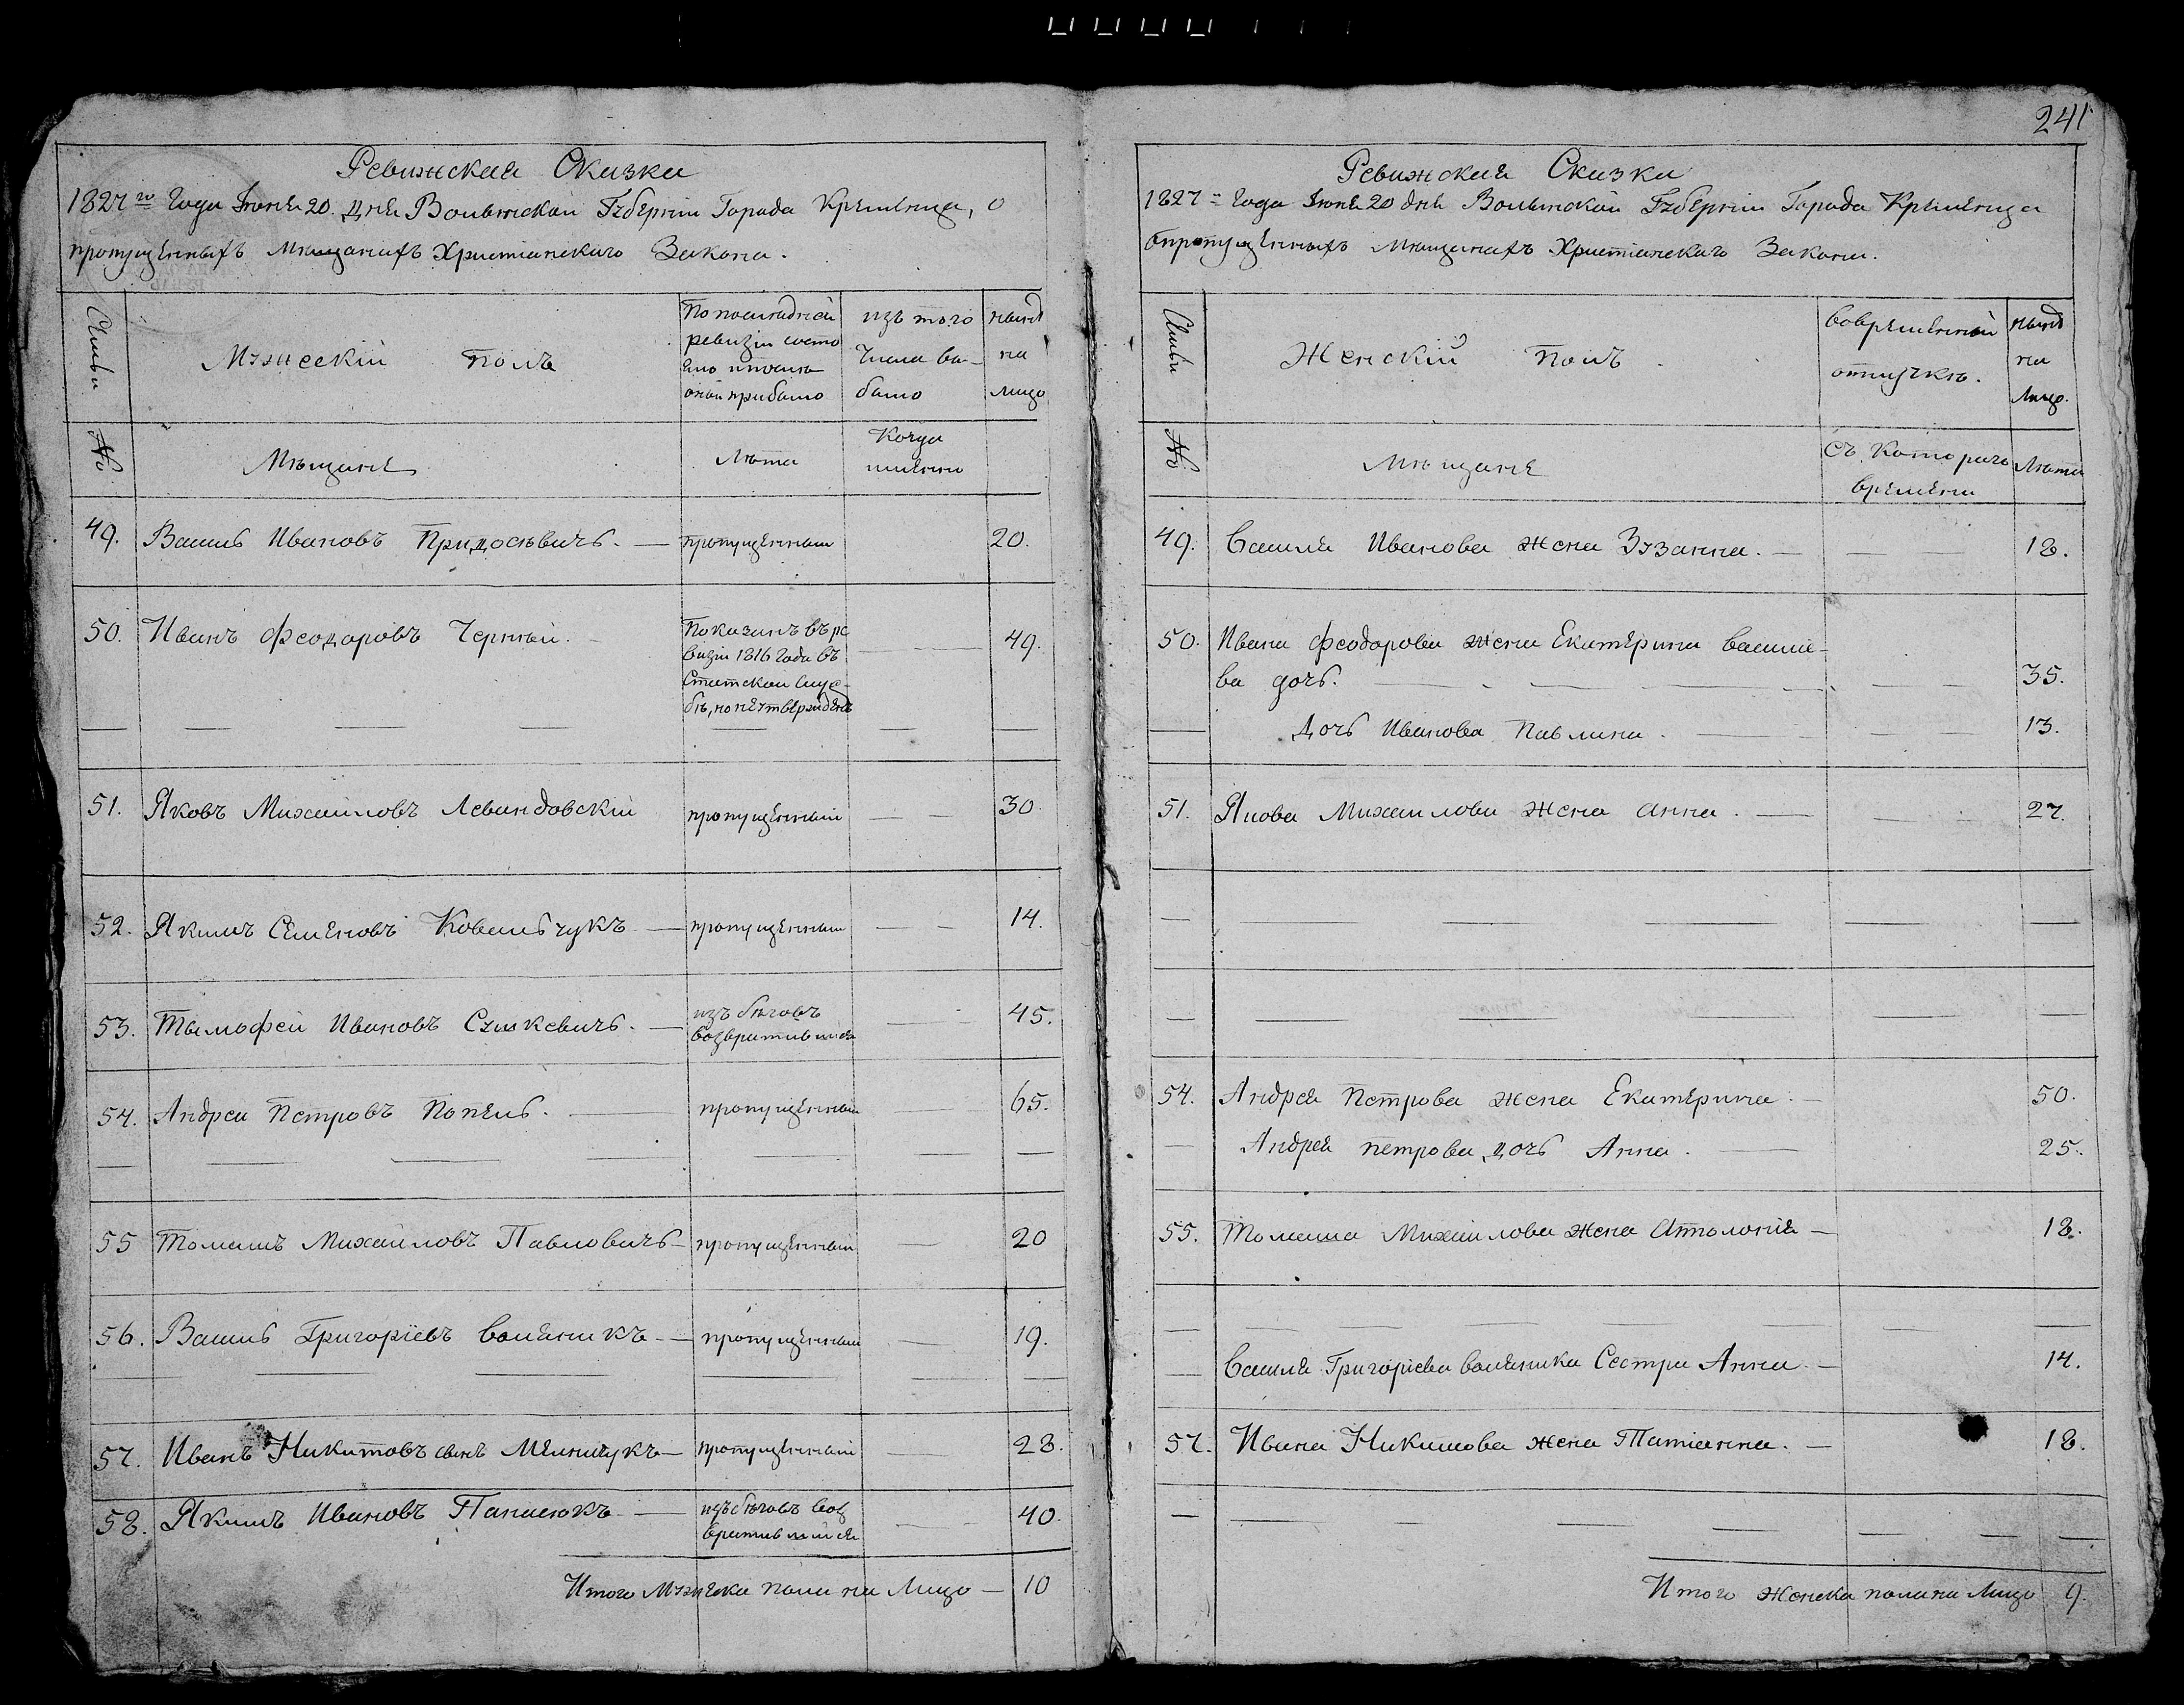 241
Ревижская Сказка
1827го Года Июня 20. дня Волынской Губерніи Города Кременца, о
пропущенныхъ мещанахъ Христіанскаго Закона.
Семьи
Мужескій Полъ
По последней
ревизіи состо
яло и после
оной прибыло
изъ того
числа вы-
было
ныне
на
лицо
№
Мещане
Лета
Когда
именно
49. Василь Ивановъ Придосевичь. — пропущенный 20.
50. Иванъ Феодоровъ Черный. —
Показанъ въ ре
визіи 1816 Года въ
Статской служ-
бе, но не утвержденъ
49.
51. Яковъ Михайловъ Левандовскій пропущенный — — 30.
52. Якимъ Семеновъ Ковальчукъ — пропущенный — — 14.
53. Тымофей Ивановъ Сушкевичь. —
изъ беговъ
возвратившися
45.
54. Андрей Петровъ Попель. — пропущенный — 65.
55 Томашъ Михайловъ Павловичь — пропущенный — 20
56. Василь Григоріевъ Воляникъ — пропущенный — 19.
57. Иванъ Никитовъ сынъ Мельничукъ — пропущенный — 28.
58. Якимъ Ивановъ Панасюкъ —
изъ беговъ воз
вратившийся
— 40.
Итого Мужеска пола на Лицо — 10
Ревижская Сказка
1827 = Года Июня 20 дня Волынской Губерніи Города Кременца
о пропущенныхъ Мещанахъ Христіанскаго Закона.
Семьи
Женскій Полъ
вовременной
отлучке.
ныне
на
Лицо.
№
Мещане
Съ котораго
времени
Лета
49. Василя Иванова жена Зузанна. — — 18.
50. Ивана Феодорова жена Екатерина васлие-
ва дочь. — 35.
Дочь Иванова Павлина. — 13.
51. Якова Михаилова жена Анна. — 27.
54. Андрея Петрова жена Екатерина. — 50.
Андрея петрова дочь Анна. — 25.
55. Томаша Михаилова жена Атполонія — 18.
Василя Григоріева воляника Сестра Анна. — 14.
57. Ивана Никитова жена Татіанна. — 18.
Итого женска пола на Лицо 9.